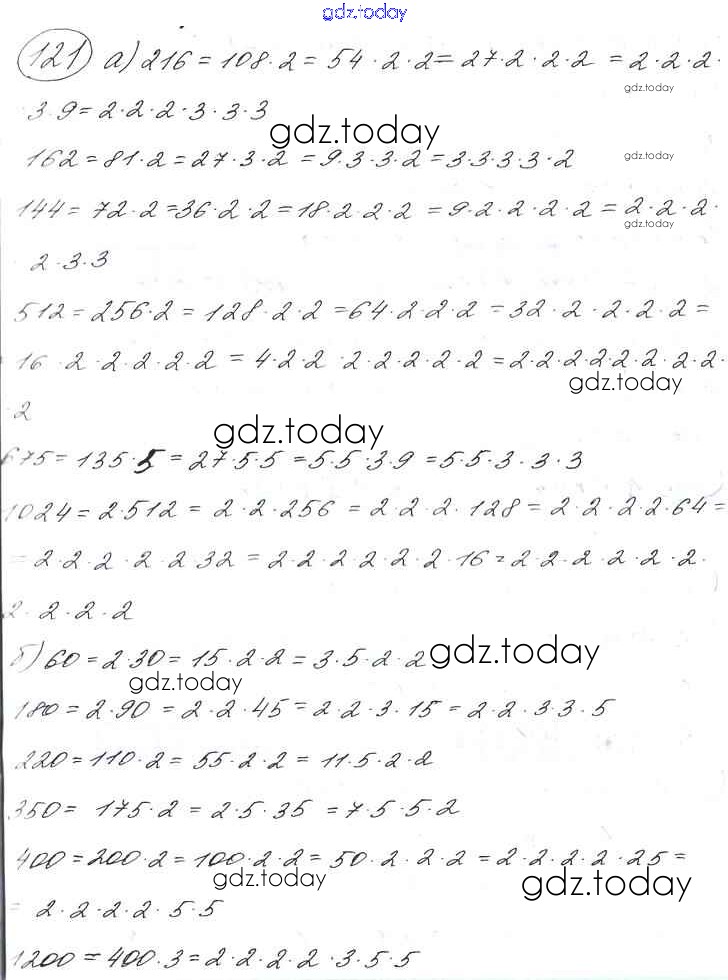 gdz.today
121 а) 216 = 108 · 2 = 54 · 2 · 2 = 27 · 2 · 2 · 2 = 2 · 2 · 2 ·
gdz.today
3 · 9 = 2 · 2 · 2 · 3 · 3 · 3
gdz.today
162 = 81 · 2 = 27 · 3 · 2 = 9 · 3 · 3 · 2 = 3 · 3 · 3 · 3 · 2
gdz.today
144 = 72 · 2 = 36 · 2 · 2 = 18 · 2 · 2 · 2 = 9 · 2 · 2 · 2 · 2 = 2 · 2 · 2 ·
gdz.today
2 · 3 · 3
512 = 256 · 2 = 128 · 2 · 2 = 64 · 2 · 2 · 2 = 32 · 2 · 2 · 2 · 2 =
16 · 2 · 2 · 2 · 2 · 2 = 4 · 2 · 2 · 2 · 2 · 2 · 2 · 2 = 2 · 2 · 2 · 2 · 2 · 2 · 2 · 2 ·
gdz.today
2
gdz.today
675 = 135 · 5 = 27 · 5 · 5 = 5 · 5 · 3 · 9 = 5 · 5 · 3 · 3 · 3
1024 = 2 · 512 = 2 · 2 · 256 = 2 · 2 · 2 · 128 = 2 · 2 · 2 · 2 · 64 =
= 2 · 2 · 2 · 2 · 2 32 = 2 · 2 · 2 · 2 · 2 · 2 · 16 = 2 · 2 · 2 · 2 · 2 · 2 ·
2 · 2 · 2 · 2
б) 60 = 2 · 30 = 15 · 2 · 2 = 3 · 5 · 2 · 2
gdz.today
gdz.today
180 = 2 · 90 = 2 · 2 · 45 = 2 · 2 · 3 · 15 = 2 · 2 · 3 · 3 · 5
220 = 110 · 2 = 55 · 2 · 2 = 11 · 5 · 2 · 2
350 = 175 · 2 = 2 · 5 · 35 = 7 · 5 · 5 · 2
400 = 200 · 2 = 100 · 2 · 2 = 50 · 2 · 2 · 2 = 2 · 2 · 2 · 2 · 25 =
gdz.today
gdz.today
= 2 · 2 · 2 · 2 · 5 · 5
1200 = 400 · 3 = 2 · 2 · 2 · 2 · 3 · 5 · 5